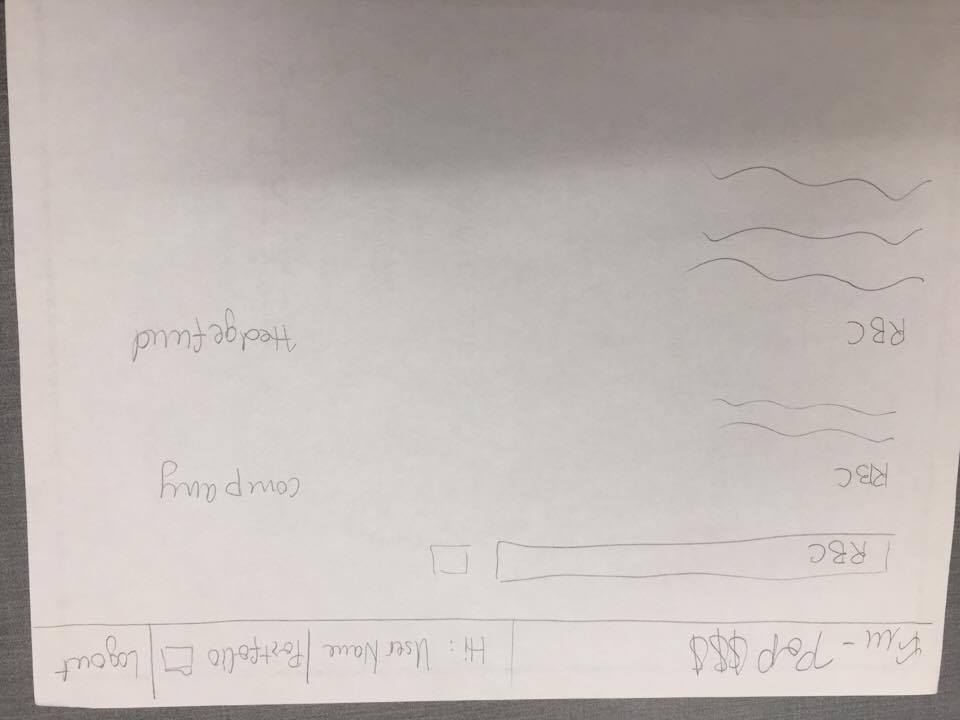 Fin - Pop $$$ Hi: User Name | Portfolio | Logout
RBC
RBC Company
RBC Hedgefund